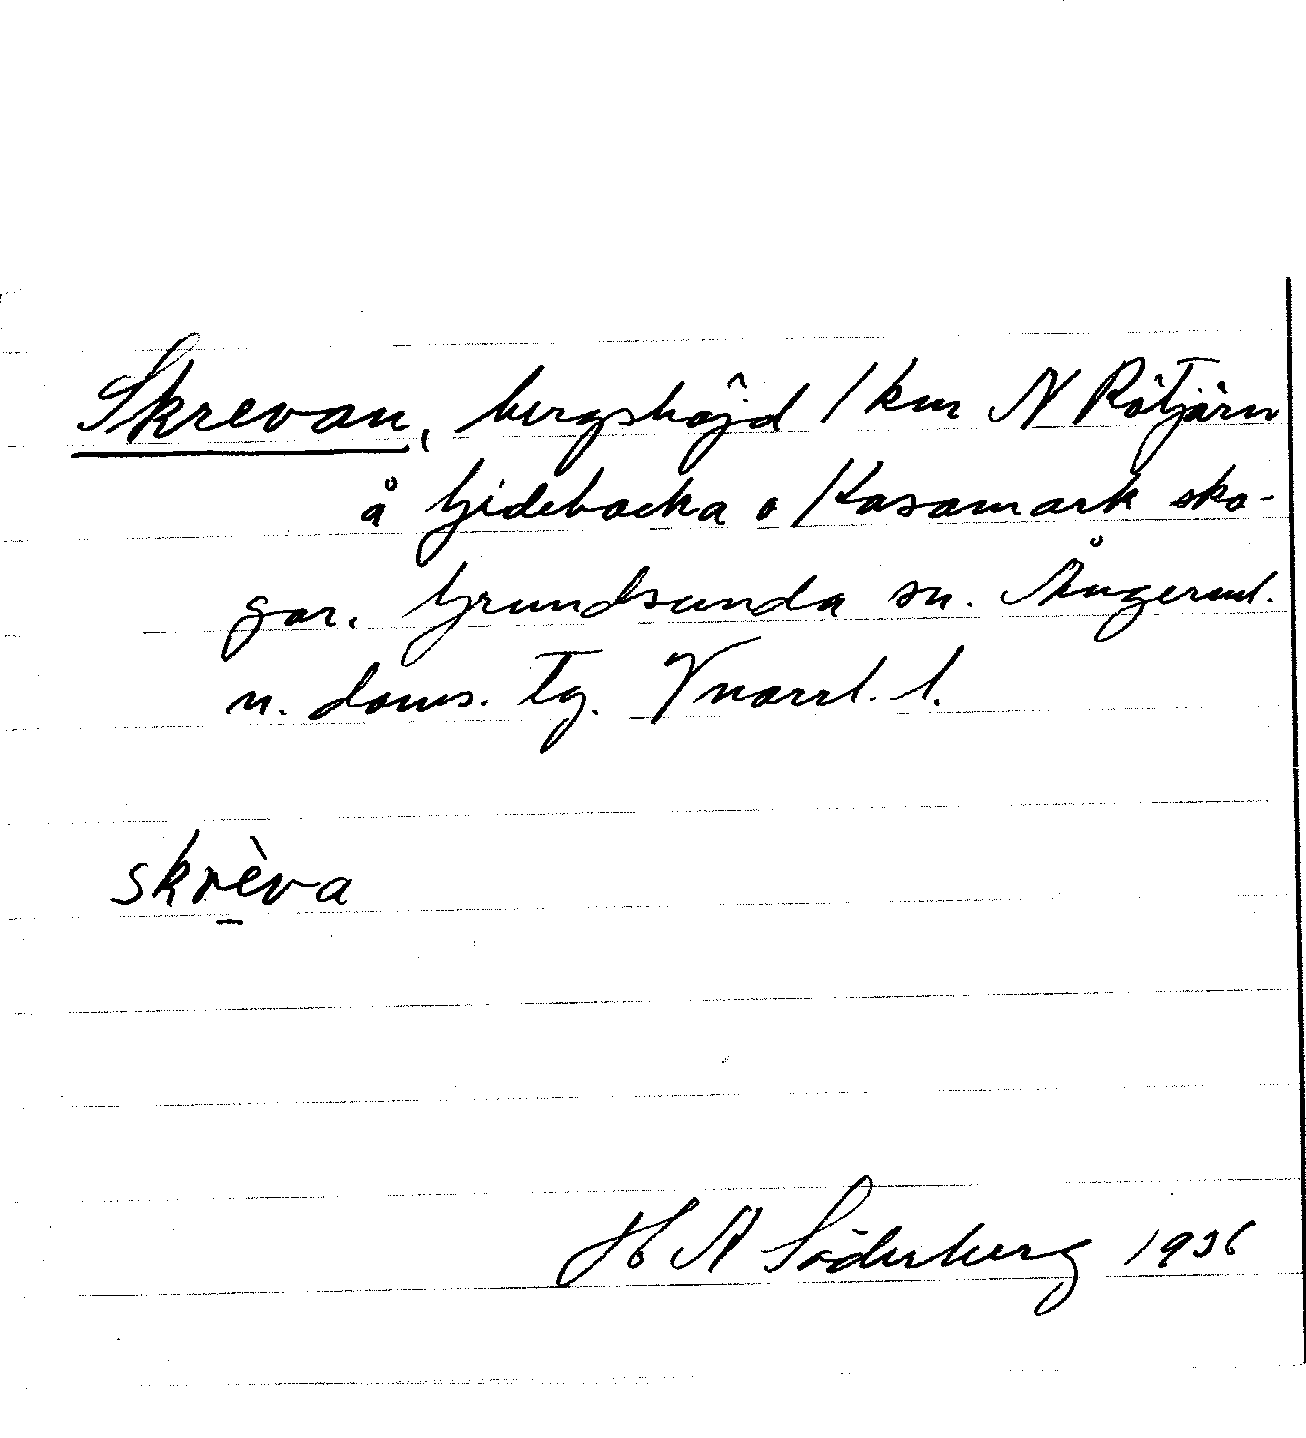 Skrevan, bergshöjd 1 km N Rötjärn
å Gidebacka o Kasamark sko-
gar. Grundsunda sn. Ångerml.
n. doms. tg. Vnorrl. l.
skrèva
H A Söderberg 1936